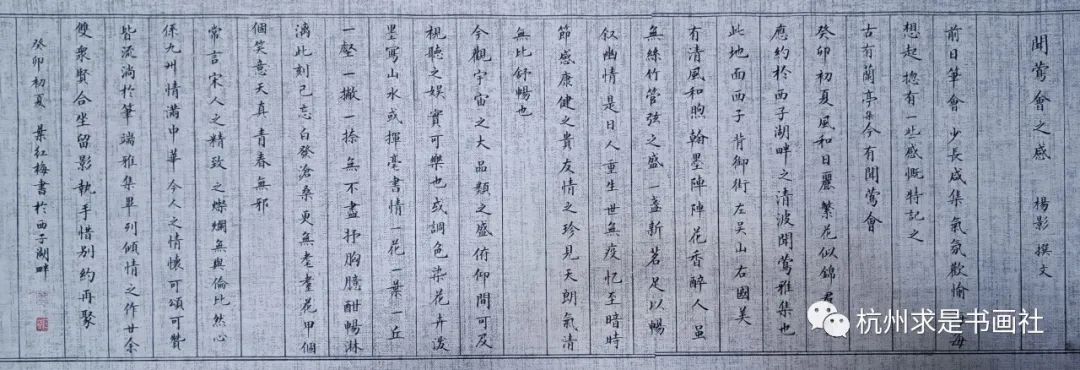 聞鶯會之感 楊影撰文
前日筆會少長咸集氣氛歡愉 每
想起惚有一些感慨特記之
古有蘭亭集今有聞鶯會
癸卯初夏風和日麗繁花似錦
應約於西子湖畔之清波聞鶯雅集也
此地面西子背御街左吴山右國美
有清風和煦翰墨陣陣花香醉人虽
無絲竹管弦之盛一盏新茗足以暢
叙幽情是日人重生世無疫忆至暗時
節感康健之貴友情之珍見天朗氣清
無比舒暢也
今觀宇宙之大品類之盛俯仰間可及
視聽之娱實可樂也或調色染花卉潑
墨寫山水或揮毫書情一花一葉一丘
一壑一撇一捺無不盡抒胸臆酣暢淋
漓此刻已忘白發滄桑更無耄耋花甲個
個笑意天真青春無邪
常言宋人之精致之燦爛無與倫比然心
係九州情滿中華今人之情懷可頌可贊
皆流淌於筆端雅集畢列傾情之作廿余
雙衆賢合坐留影執手惜别約再聚
癸卯初夏葉紅梅書於西子湖畔
杭州求是书画社